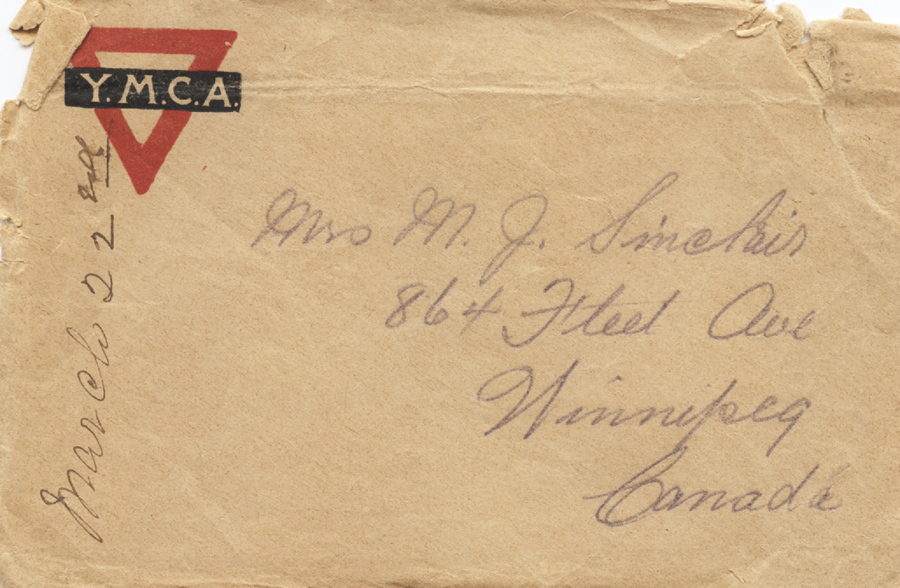 Y.M.C.A.
March 22nd
Mrs M. J. Sinclair
864 Fleet Ave
Winnipeg
Canada